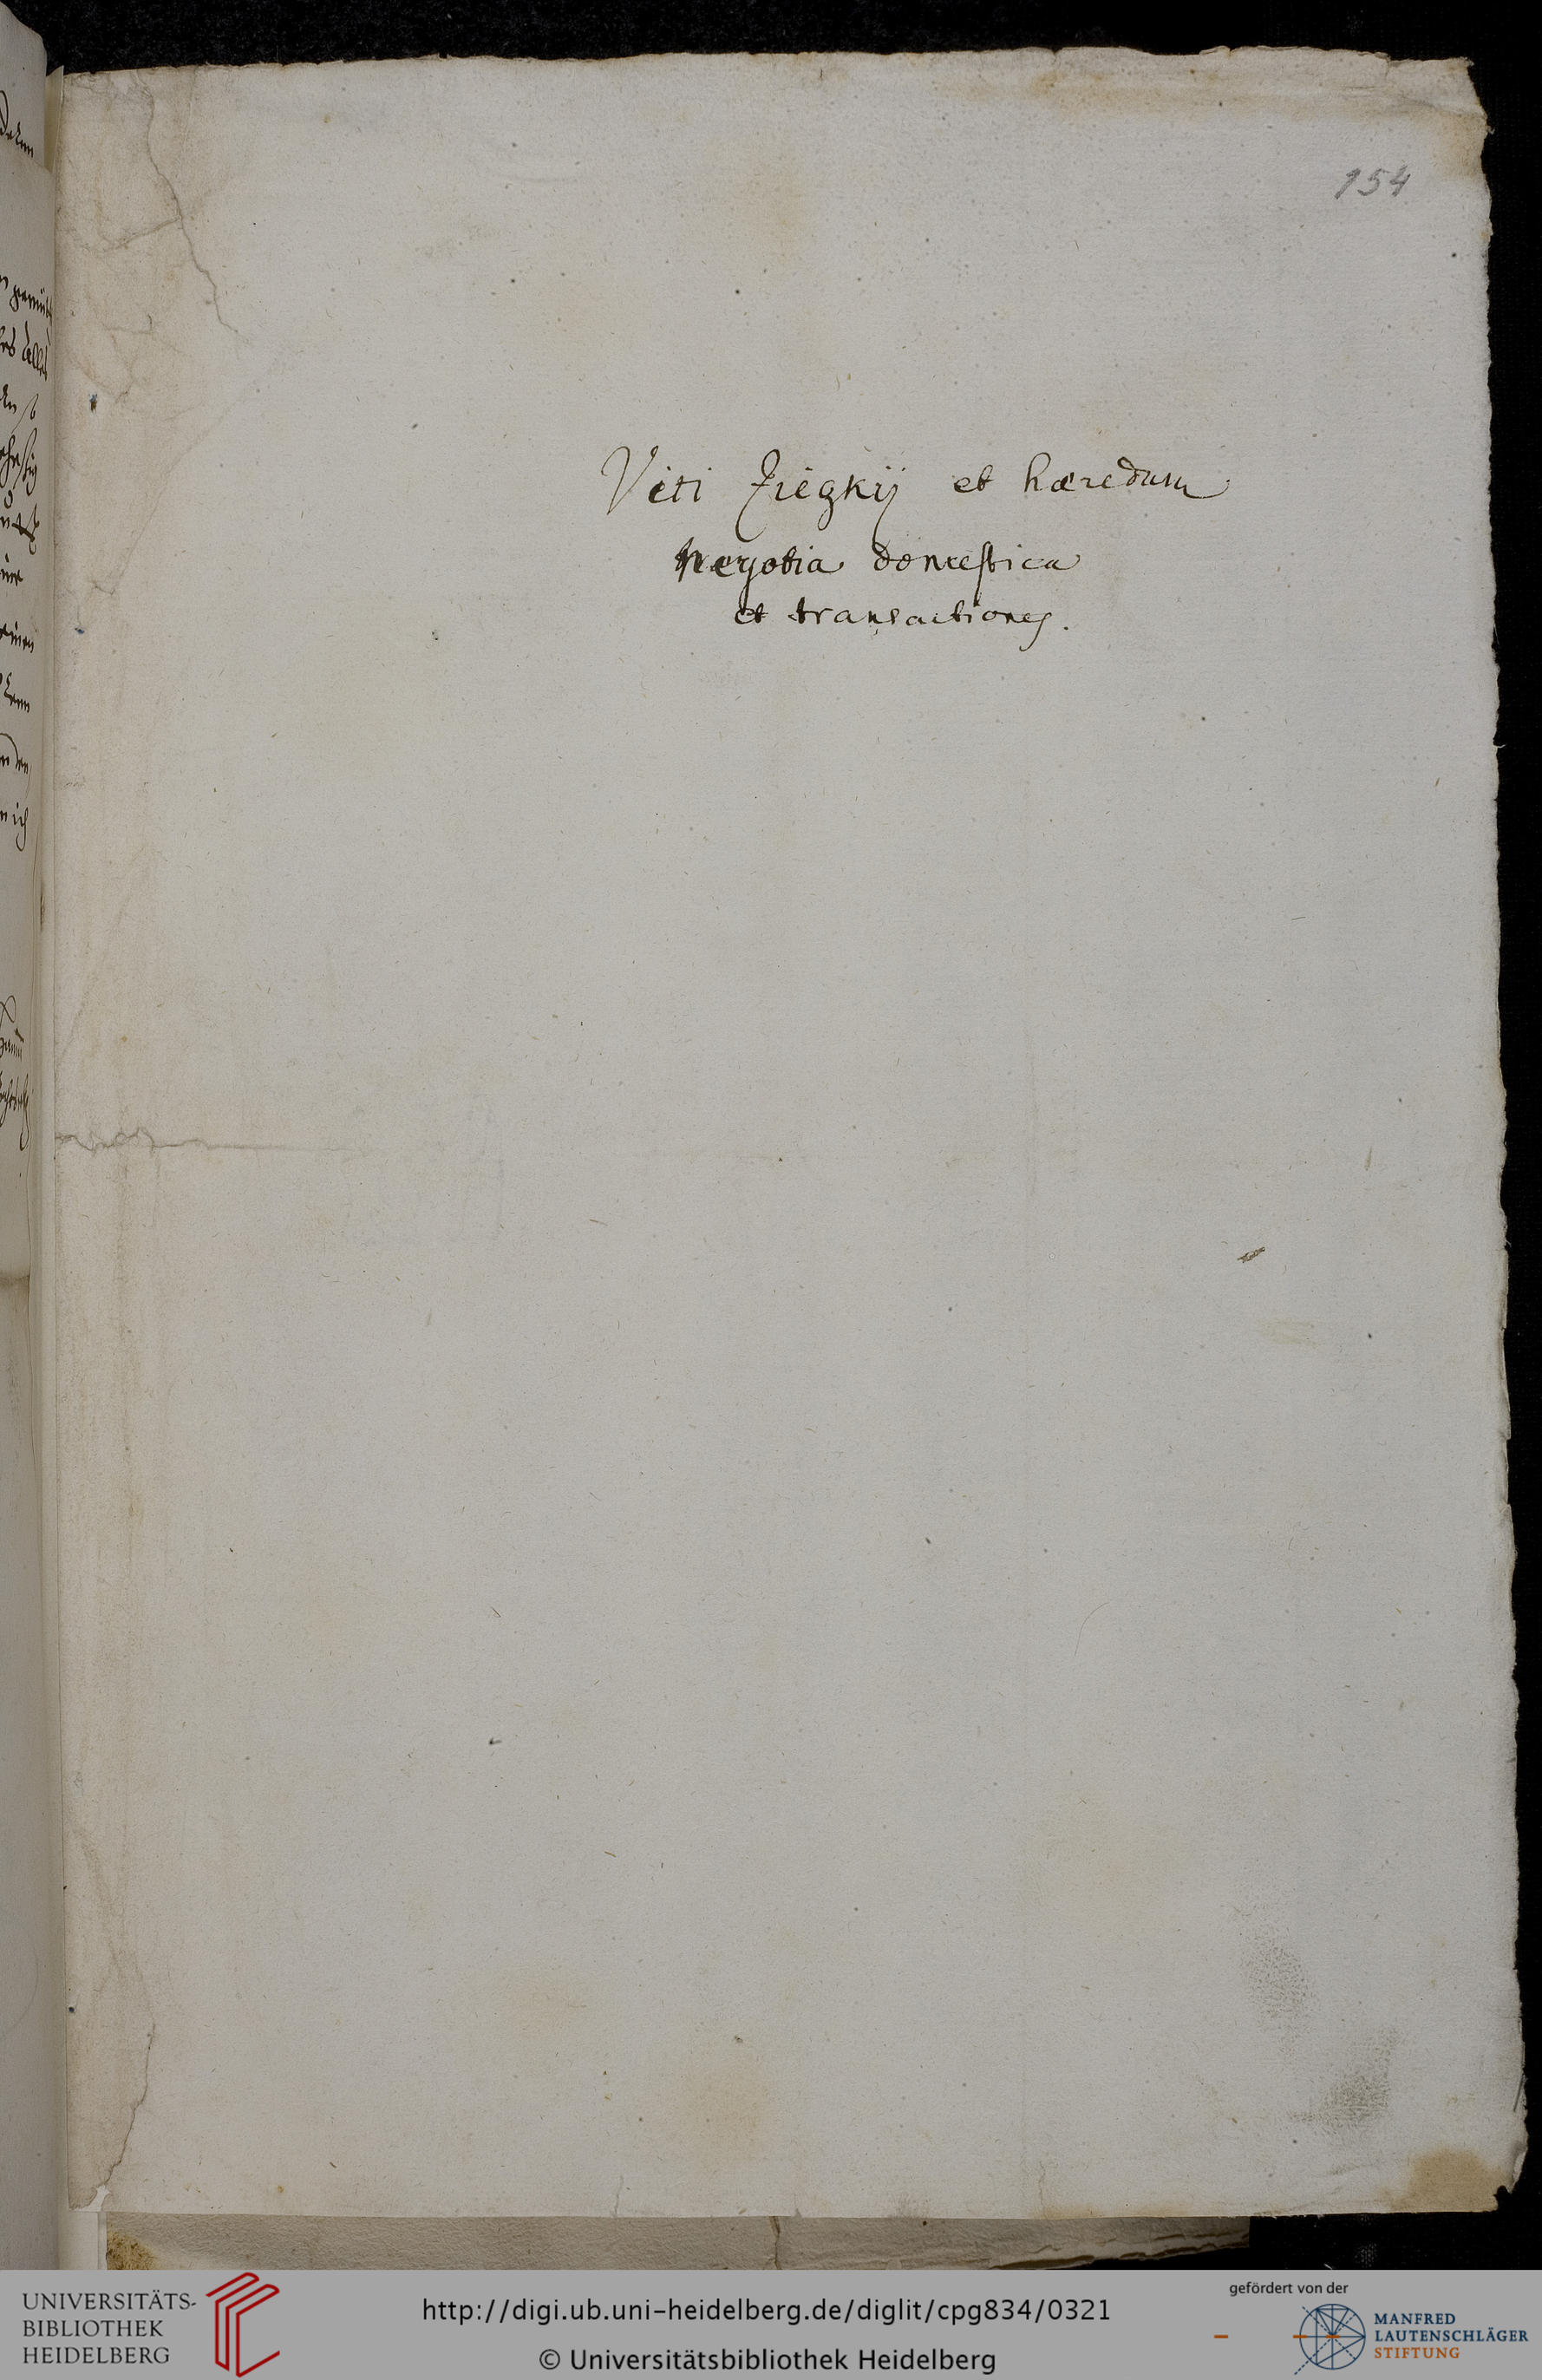 154
Viti Ziegkij et hæredum
negotia domestica
et transactiones.
UNIVERSITÄTS-
BIBLIOTHEK
HEIDELBERG
http://digi.ub.uni-heidelberg.de/diglit/cpg834/0321
© Universitätsbibliothek Heidelberg
gefördert von der
MANFRED
LAUTENSCHLÄGER
STIFTUNG